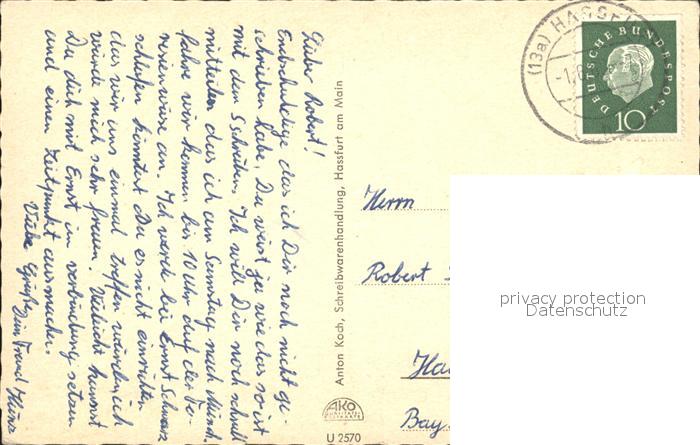 Lieber Robert!
Entschuldige das ich Dir noch nicht ge-
schrieben habe. Du weist ja wie das so ist
mit dem Schreiben. Ich will Dir noch schnell
mitteilen das ich am Sonntag nach Münch.
fahre wir kommen bis 10 Uhr auf der
an. Ich werde bei Ernst
schlafen könntest Du es nicht einrichten
das wir uns einmal treffen würden ich
würde mich sehr freuen. Vieleicht kannst
Du dich mit Ernst in verbindung setzen
und einen Zeitpunkt ausmachen.
Viele Grüße
Dein Freund Heinz
Anton Koch, Schreibwarenhandlung, Hassfurt am Main
AKO
U 2570
(13a) HASSFU
DEUTSCHE BUNDESPOST
10
Herrn
Robert
privacy protection
Datenschutz
Ha
Bay.